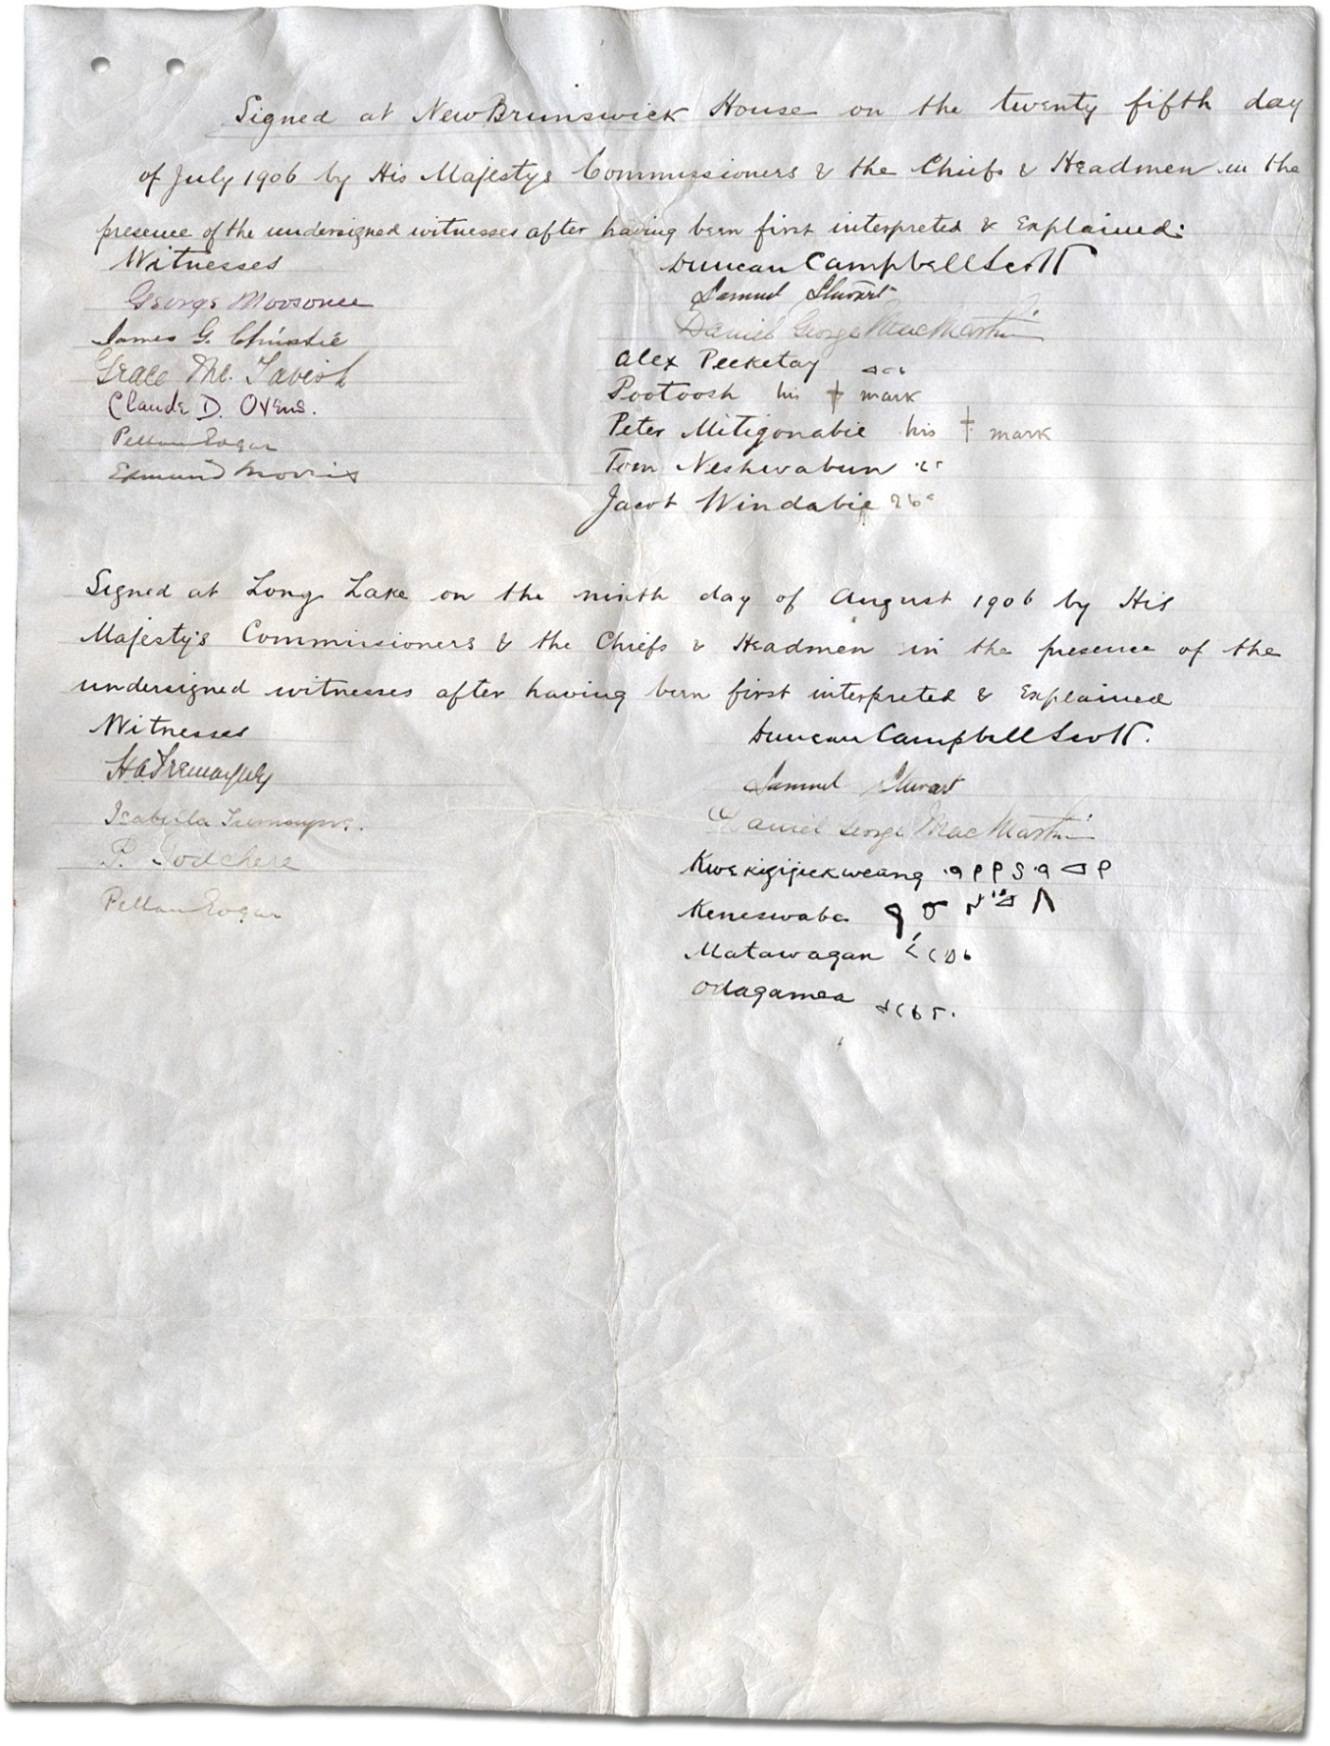 Signed at New Brunswick House on the twenty fifth day
of July 1906 by His Majestys Commissioners & the Chiefs & Headmen in the
presence of the undersigned witnesses after having been first interpreted & explained:
Witnesses
George Moosonee
James G. Christie
Grace Mc. Tavish
Claude D. Ovens.
Pelham Edgar
Edmund Morris
Duncan Campbell Scott
Samuel Stewart
Daniel George MacMartin
Alex Peeketay
Pootoosh his + mark
Peter Mitigonabie his + mark
Tom Neshwabun
Jacob Windabie
Signed at Long Lake on the ninth day of August 1906 by His
Majesty's Commissioners & the Chiefs & Headmen in the presence of the
undersigned witnesses after having been first interpreted & explained
Witnesses
H.A. Tremayne
Isabella Tremayne.
P. Godchere
Pelham Edgar
Duncan Campbell Scott.
Samuel Stewart
Daniel George MacMartin
Kwekigijickweang ᐧᑫᑭᑭᔕᐧᑫᐊᑭ
Keneswabe
Matawagan
Odagamea